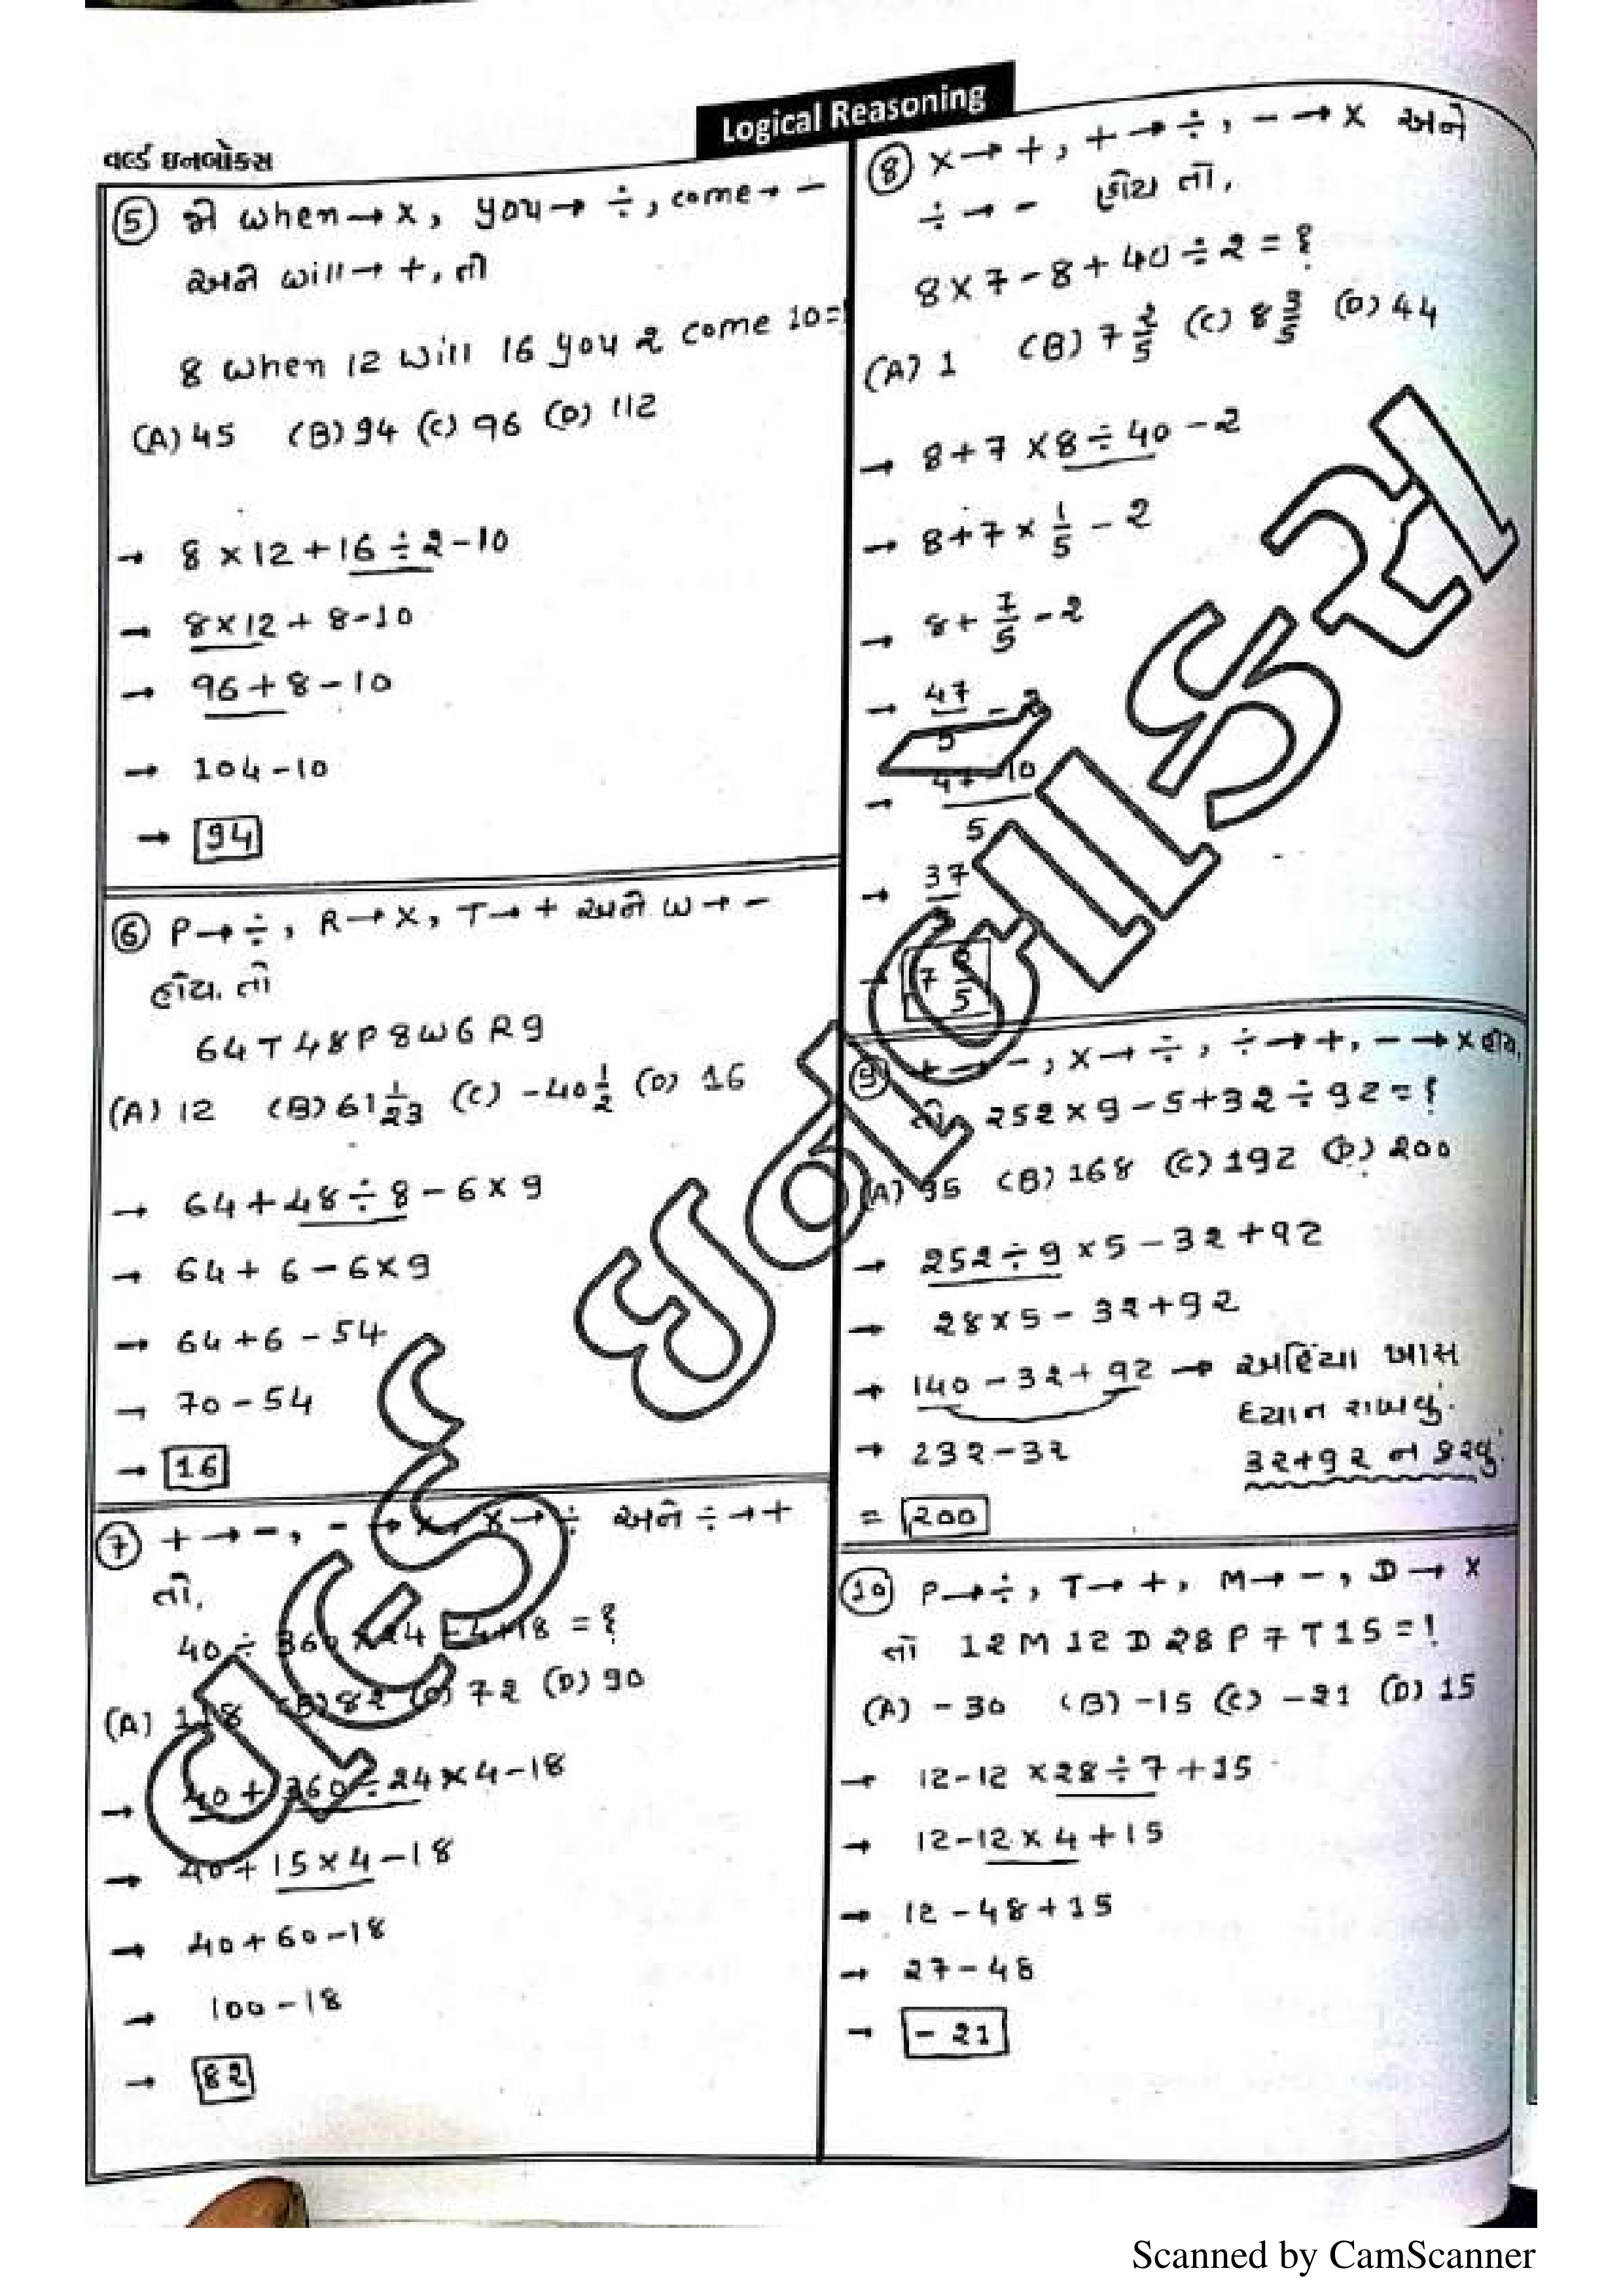 Logical Reasoning
વર્લ્ડ ઇનબોક્સ
⑤ જો when → ×, you → ÷, come → −
અને will → +, તો
8 when 12 will 16 you 2 come 10 = ?
(A) 45 (B) 94 (C) 96 (D) 112
→ 8 × 12 + 16 ÷ 2 − 10
→ 8 × 12 + 8 − 10
→ 96 + 8 − 10
→ 104 − 10
→ 94
⑥ P → ÷, R → ×, T → + અને W → −
હોય. તો
64 T 48 P 8 W 6 R 9
(A) 12 (B) 61 1/23 (C) −40 1/2 (D) 16
→ 64 + 48 ÷ 8 − 6 × 9
→ 64 + 6 − 6 × 9
→ 64 + 6 − 54
→ 70 − 54
→ 16
⑦ + → −, − → ×, × → ÷ અને ÷ → +
તો,
40 ÷ 360 × 24 − 4 + 18 = ?
(A) 118 (B) 82 (C) 72 (D) 90
→ 40 + 360 ÷ 24 × 4 − 18
→ 40 + 15 × 4 − 18
→ 40 + 60 − 18
→ 100 − 18
→ 82
⑧ × → +, + → ÷, − → × અને
÷ → − હોય તો,
8 × 7 − 8 + 40 ÷ 2 = ?
(A) 1 (B) 7 2/5 (C) 8 3/5 (D) 44
→ 8 + 7 × 8 ÷ 40 − 2
→ 8 + 7 × 1/5 − 2
→ 8 + 7/5 − 2
→ 47/5 − 2
→ 47 − 10 / 5
→ 37
→ 7 5
⑨ + → −, × → ÷, ÷ → +, − → × હોય,
તો 252 × 9 − 5 + 32 ÷ 92 = ?
(A) 95 (B) 168 (C) 192 (D) 200
→ 252 ÷ 9 × 5 − 32 + 92
→ 28 × 5 − 32 + 92
→ 140 − 32 + 92 → અહિંયા ખાસ
ધ્યાન રાખવું.
→ 232 − 32
32 + 92 ન કરવું.
= 200
⑩ P → ÷, T → +, M → −, D → ×
તો 12 M 12 D 28 P 7 T 15 = ?
(A) −30 (B) −15 (C) −21 (D) 15
→ 12 − 12 × 28 ÷ 7 + 15
→ 12 − 12 × 4 + 15
→ 12 − 48 + 15
→ 27 − 48
→ −21
વર્લ્ડ ઇનબોક્સ
Scanned by CamScanner